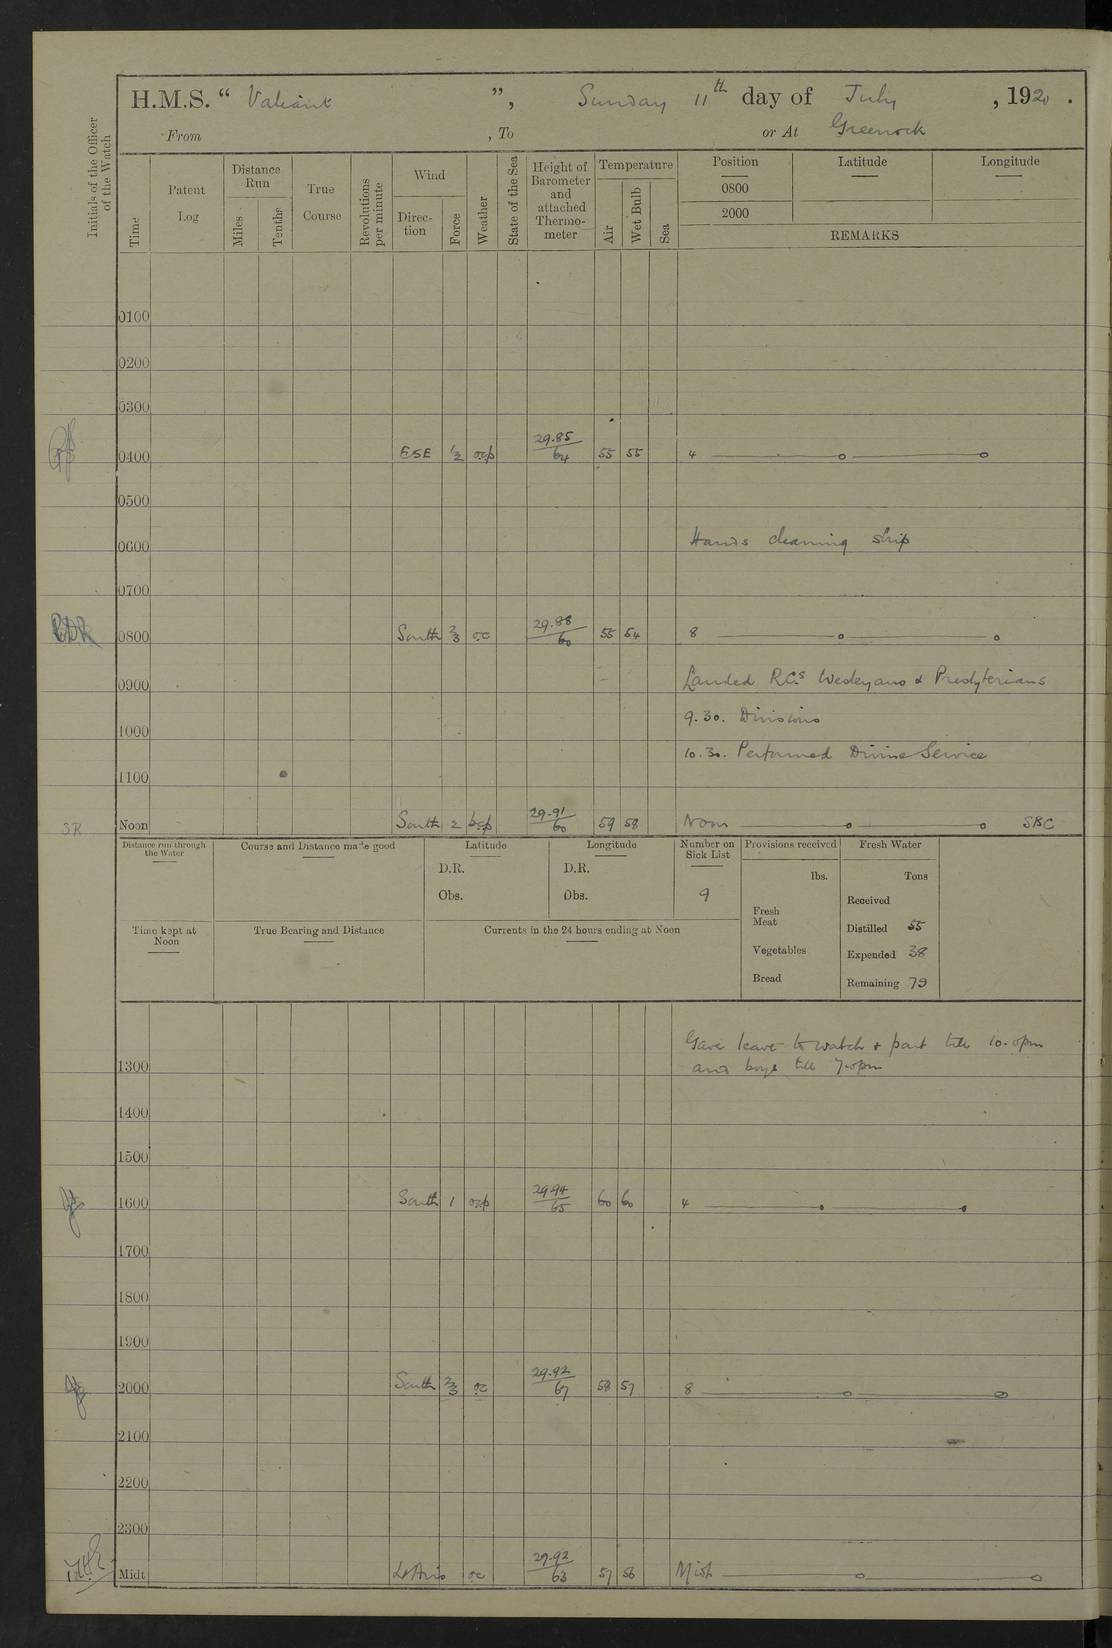 H.M.S. “ Valiant ”, Sunday 11th day of July , 1920 .
From , To or At Greenock
Initials of the Officer of the Watch
Time
Patent Log
Distance Run
Miles
Tenths
True Course
Revolutions per minute
Wind
Direc-tion
Force
Weather
State of the Sea
Height of Barometer and attached Thermo-meter
Temperature
Air
Wet Bulb
Sea
Position Latitude Longitude
0800
2000
REMARKS
0100
0200
0300
0400 ESE 1/2 29.85/64 55 55 4
0500
0600 Hands cleaning ship
0700
0800 South 2/3 oc 29.88/60 55 54 8
0900 Landed R.C.s Wesleyans & Presbyterians
9.30. Divisions
1000
10.30. Performed Divine Service
1100
SR Noon South 2 bcp 29.91/60 59 58 Noon SBC
Distance run through the Water
Course and Distance made good
Latitude
D.R.
Obs.
Longitude
D.R.
Obs.
Number on Sick List
9
Provisions received
lbs.
Fresh Meat
Vegetables
Bread
Fresh Water
Tons
Received
Distilled 55
Expended 38
Remaining 79
Time kept at Noon
True Bearing and Distance
Currents in the 24 hours ending at Noon
Gave leave to watch & part till 10.0pm
1300 and boys till 7.0pm
1400
1500
1600 South 1 29.94/65 60 60 4
1700
1800
1900
2000 South 2/3 oc 29.92/67 58 57 8
2100
2200
2300
Midt Lt Airs oc 29.92/63 57 56 Midt